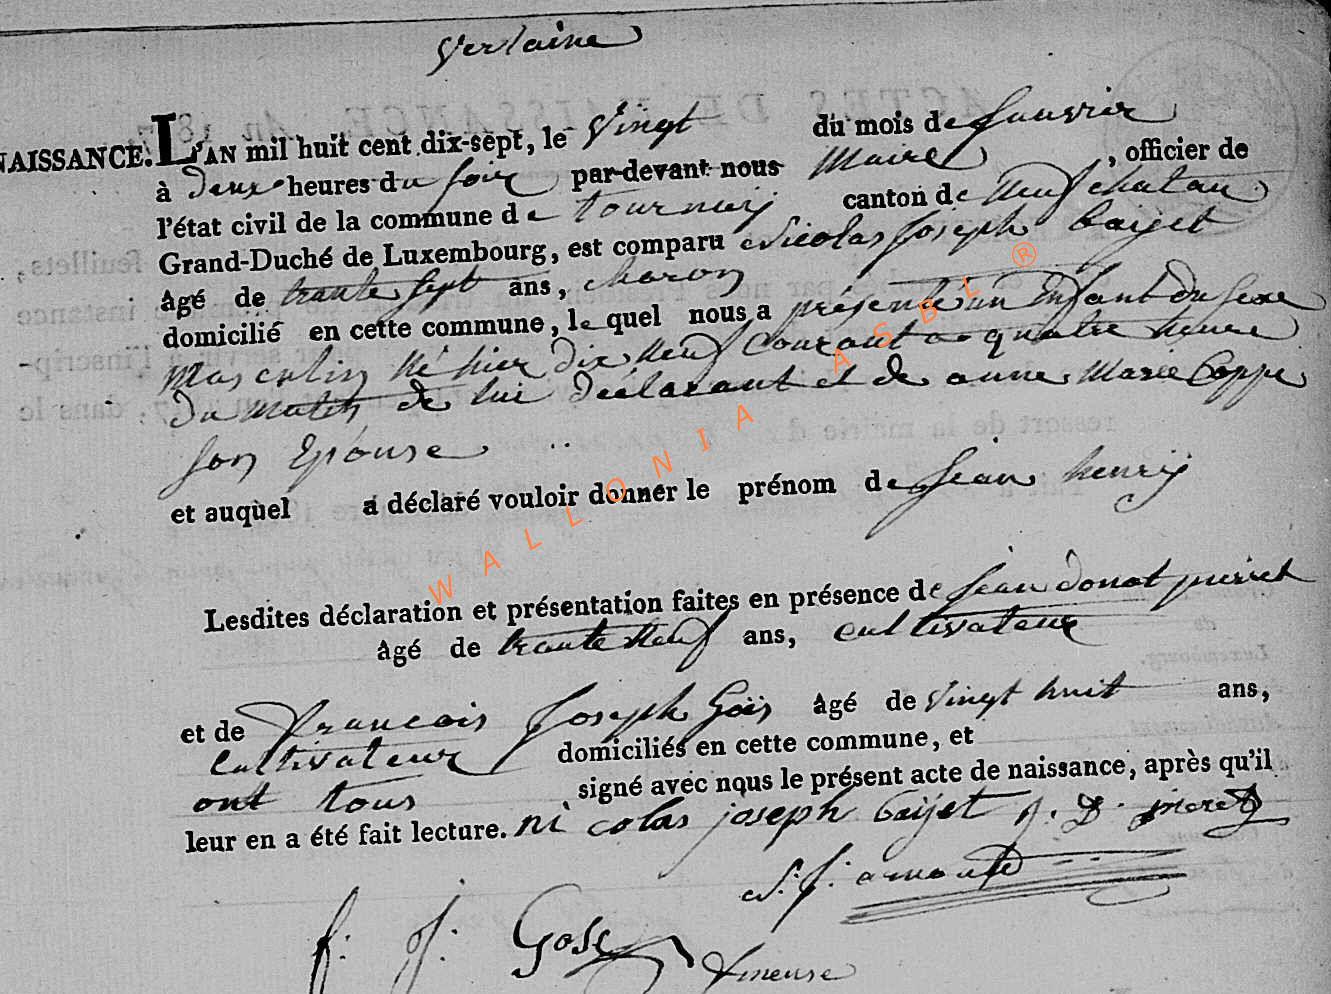 Verlaine
NAISSANCE. L'AN mil huit cent dix-sept, le vingt du mois de Janvier
à deux heures du soir par-devant nous Maire, officier de
l'état civil de la commune de tournaij canton de Neufchatau
Grand-Duché de Luxembourg, est comparu Nicolas Joseph baijet
âgé de trante sept ans, charon
domicilié en cette commune, le quel nous a présenté un Enfant du sexe
Masculin né hier dix neuf courant a quatre heure
du matin de lui déclarant et de anne Marie Coppe
son Epouse ..
et auquel a déclaré vouloir donner le prénom de Jean henrij
Lesdites déclaration et présentation faites en présence de Jean donat pierret
âgé de trante neuf ans, cultivateur
et de francois Joseph Gois âgé de vingt huit ans,
cultivateur domiciliés en cette commune, et
ont tous signé avec nous le présent acte de naissance, après qu'il
leur en a été fait lecture. nicolas joseph baijet J. D. pieret
N: J: amould
f: J: Goss
WALLONIA ASBL ®